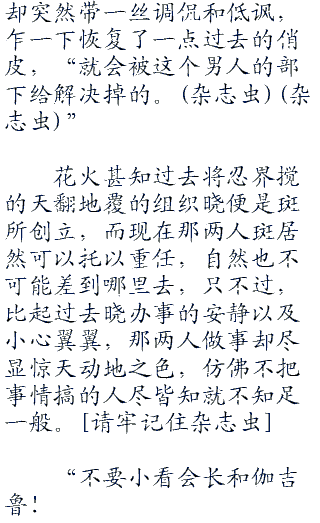 却突然带一丝调侃和低讽，
乍一下恢复了一点过去的俏
皮，“就会被这个男人的部
下给解决掉的。(杂志虫)(杂
志虫)”
花火甚知过去将忍界搅
的天翻地覆的组织晓便是斑
所创立，而现在那两人斑居
然可以托以重任，自然也不
可能差到哪里去，只不过，
比起过去晓办事的安静以及
小心翼翼，那两人做事却尽
显惊天动地之色，仿佛不把
事情搞的人尽皆知就不知足
一般。[请牢记住杂志虫]
“不要小看会长和伽吉
鲁！